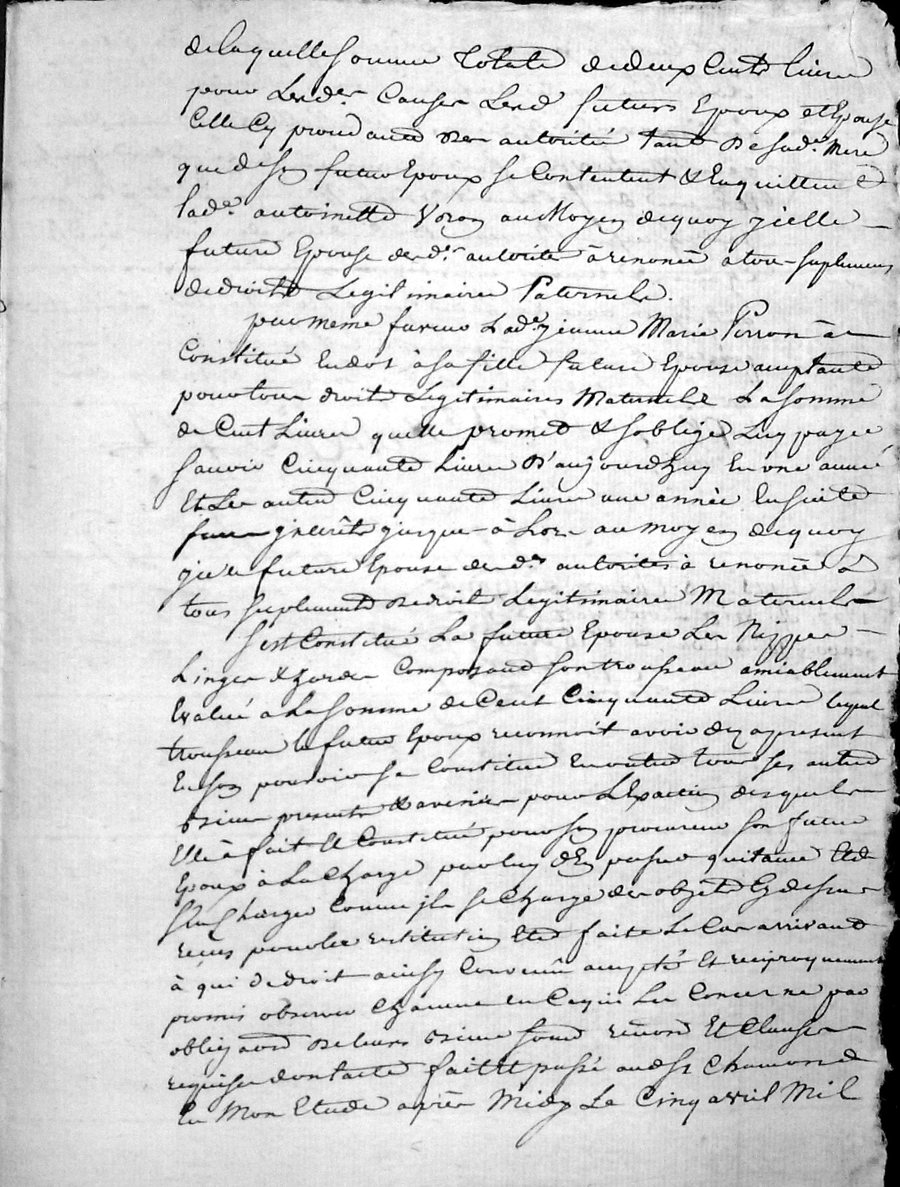 de laquelle somme totale de deux Cents livres
pour Lesd.es Causes Lesd futurs Epoux et Epouse
Celle Cy procedant de autorité tant De sad.e Mere
que de son futur Epoux se Contentent & En quittent
lad.e antoinette au Moyen dequoy icelle
future Epouse desd.s autorités à renoncé a tous suplements
de droits Legitimaires Paternels.
par meme faveur Lad.e jeanne Marie à
Constitué En dot à sa fille future Epouse acceptante
pour tous droits Legitimaires Maternels La somme
de Cent Livres quelle promet & soblige Luy payer
savoir Cinquante Livres D'aujourdhuy En une année
Et Les autres Cinquante Livres une année Ensuite
sans jnterêts jusque à Lors au moyen dequoy
jcelle future Epouse desd.s autorités à renoncé à
tous suplements de droits Legitimaires Maternels
sest Constitué La future Epouse Les Nippes
Linges & hardes Composant son trousseau amiablement
Evalué a La somme de Cent Cinquante Livres lequel
trousseau le futur Epoux reconnoit avoir dez apresent
En son pouvoir se Constitue En outre tous ses autres
biens presents & avenir pour L'Exaction desquels
Elle à fait & Constitué pour son procureur son futur
Epoux à La Charge par luy d'En passer quitance Et de
sen Charger Comme jl se Charge des objets Cy dessus
reçus pour les restitution Etre faite Le Cas arrivant
à qui de droit ainsy Convenu accepté Et reciproquement
promis observer Chacune en Ce qui Les Concerne par
obligation De leurs biens soumis renon Et Clauses
requises dont acte fait Et passé aud St Chamond
En Mon Etude après Midy Le Cinq avril Mil